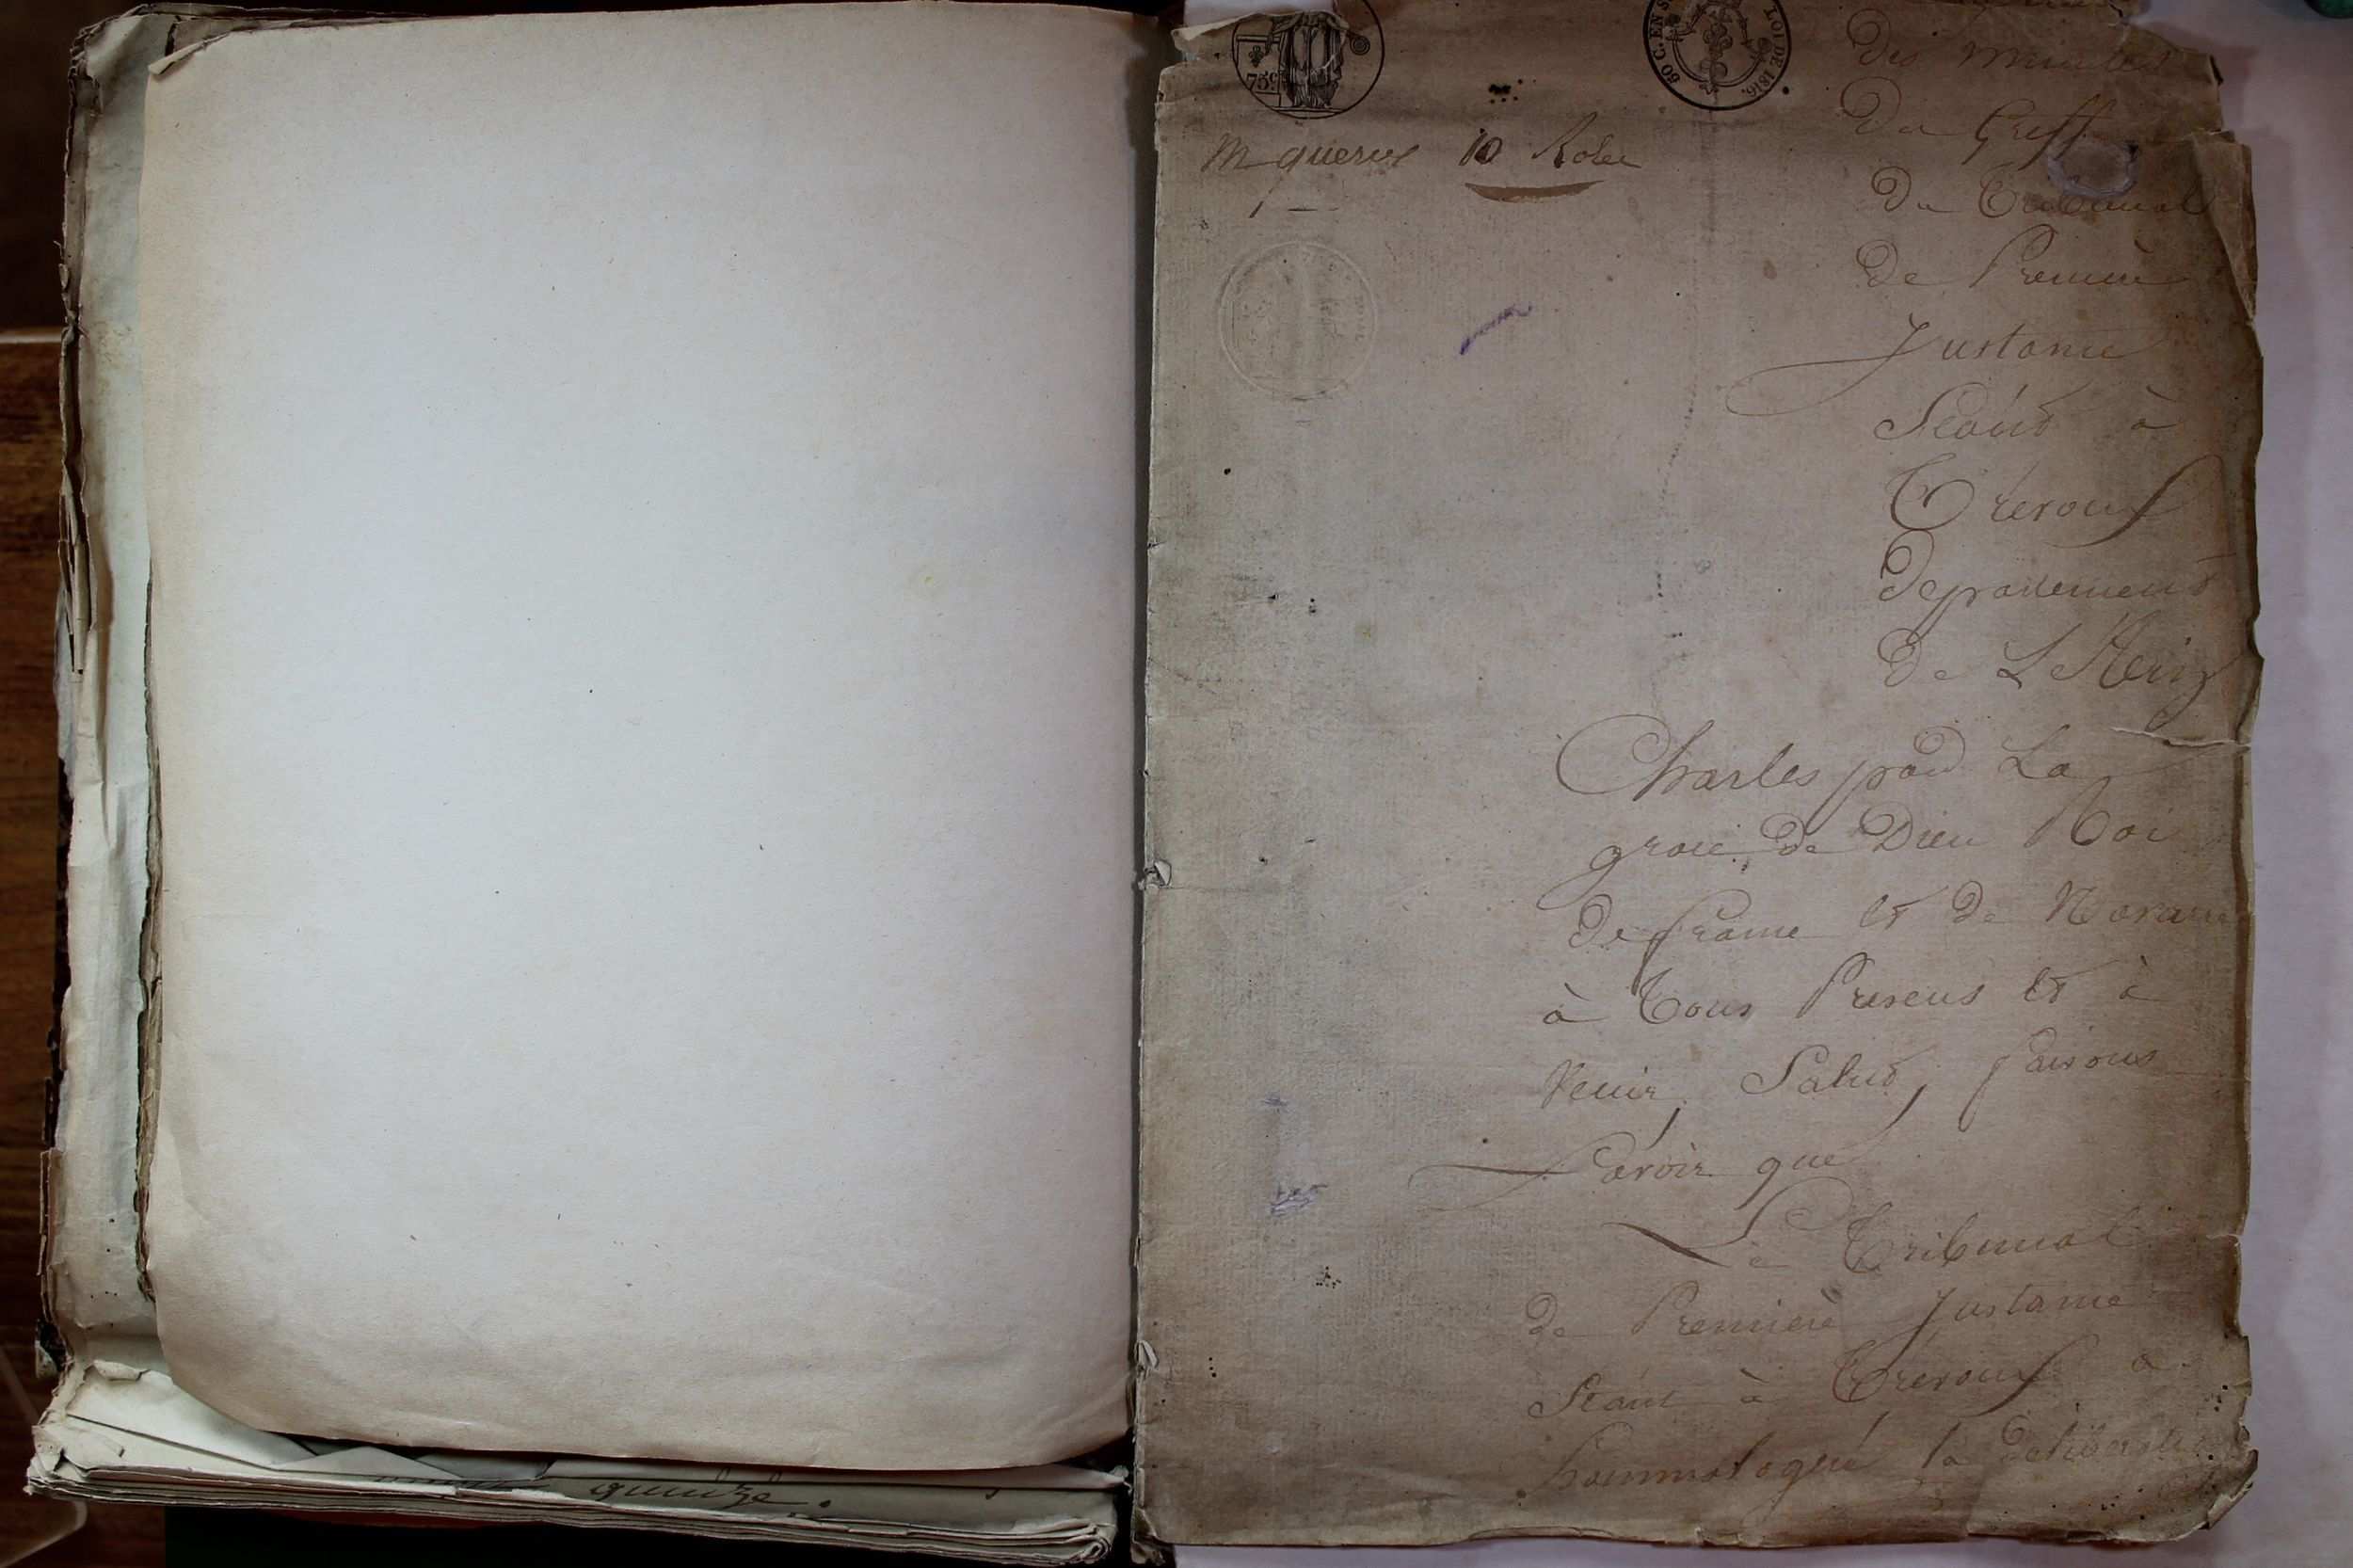 75c.
60 C. EN S
LOI DE 1816.
des minutes
Du Greffe
M queruel 10 Roles
Du Tribunal
de Premiere
Instance
Séant à
Trevoux
Departement
de L'Ain
Charles par La
grace de Dieu Roi
de france et de Navarre
à Tous Presens et à
Venir, Salut, faisons
Savoir que
Le Tribunal
de Premiere Instance
Séant à Trevoux a
hommologué la délibérati
quinze.